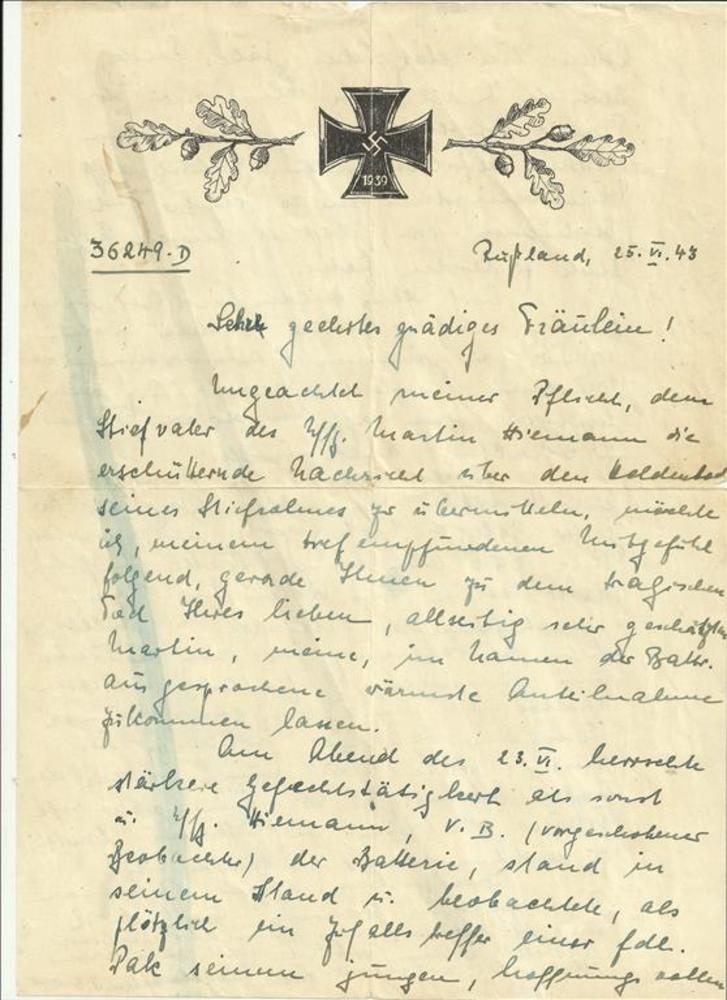 1939
36249.D
Rußland, 25.VI.43
Sehr geehrtes gnädiges Fräulein!
Ungeachtet meiner Pflicht, dem
Stiefvater des Uffz. Martin Hiemann die
erschütternde Nachricht über den Heldentod
seines Stiefsohnes zu übermitteln, möchte
ich, meinem tief empfundenen Mitgefühl
folgend, gerade Ihnen zu dem tragischen
Tod Ihres lieben, allseitig sehr geschätzten
Martin, meine, im Namen der Battr.
ausgesprochene wärmste Anteilnahme
zukommen lassen.
Am Abend des 23.VI. herrschte
stärkere Gefechtstätigkeit als sonst
u. Uffz. Hiemann, V.B. (vorgeschobener
Beobachter) der Batterie, stand in
seinem Stand u. beobachtete, als
plötzlich ein Zufallstreffer einer fdl.
Pak seinem jungen, hoffnungsvollen